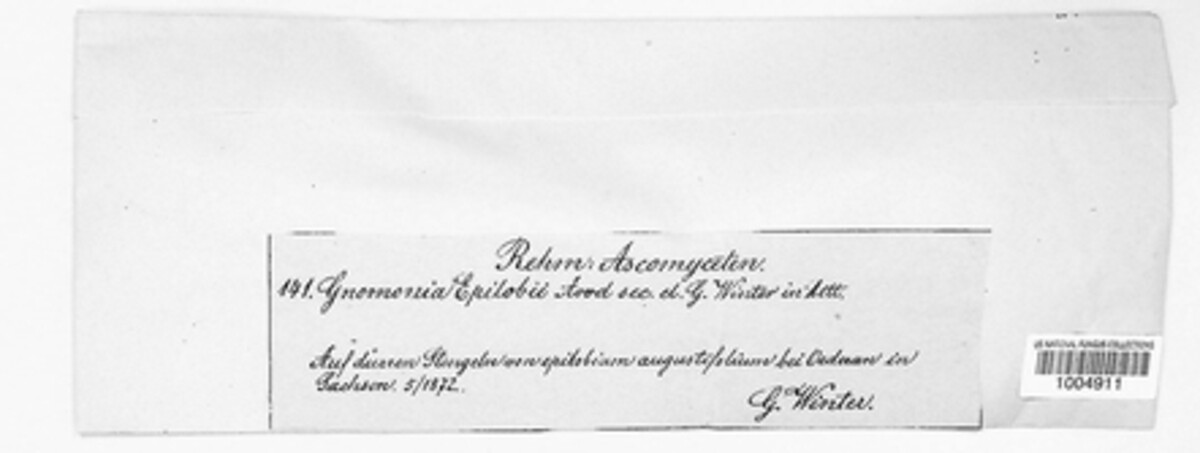 Rehm: Ascomyceten.
141. Gnomonia Epilobii Awd sec. cl. G. Winter in litt.
Auf dürren Stengeln von epilobium augustifolium bei Oederan in
Sachsen. 5/1872.
G. Winter.
US NATIONAL FUNGUS COLLECTIONS
1004911